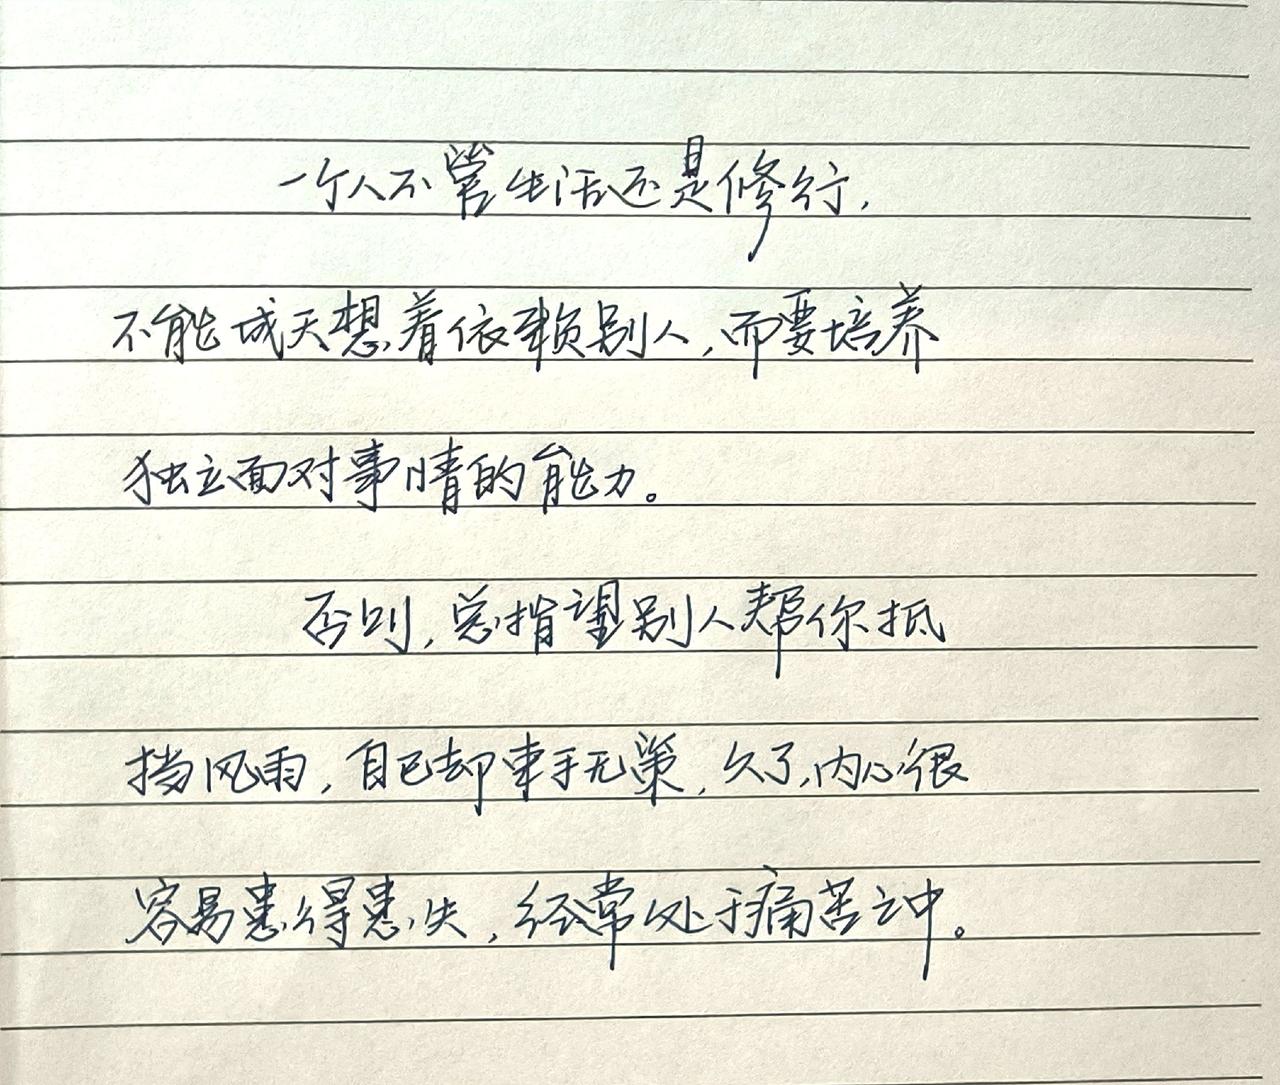 一个人不管生活还是修行，
不能成天想着依赖别人，而要培养
独立面对事情的能力。
否则，总指望别人帮你抵
挡风雨，自己却束手无策，久了，内心很
容易患得患失，经常处于痛苦之中。